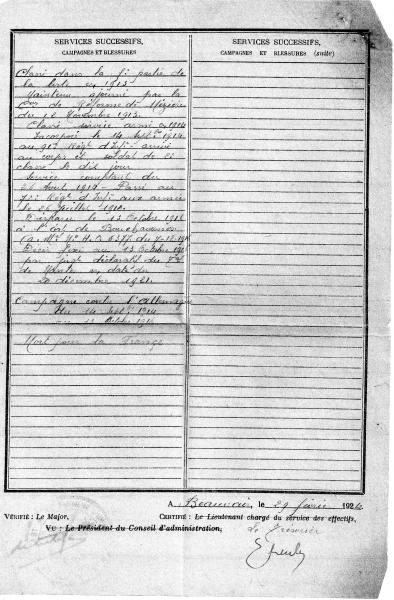 SERVICES SUCCESSIFS,
CAMPAGNES ET BLESSURES
Classé dans la 5e partie de
la liste en 1913
Maintenu ajourné par la
Con de Réforme de Mézières
du 12 Novembre 1913.
Classé service armé en 1914
Incorporé le 14 Septbre 1914
au 91e Régt d'Infie arrivé
au corps et soldat de 2e
classe le dit jour
Service comptant du
Passé au
Régt d'Infie aux armées
le 26 Juillet 1916.
Disparu le 13 Octobre 1916
à l'Est de Bouchavesnes
Décès fixé au 13 Octobre 191
par jugt déclaratif du
de en date du
20 décembre 1921.
Campagne contre l'Allemagne
du 14 Septbre 1914
au 13 Octobre 1916
Mort pour la France
SERVICES SUCCESSIFS,
CAMPAGNES ET BLESSURES (suite)
A Beauvais, le 29 192
VÉRIFIÉ : Le Major, CERTIFIÉ : Le Lieutenant chargé du service des effectifs,
VU : Le Président du Conseil d'administration, Le Trésorier